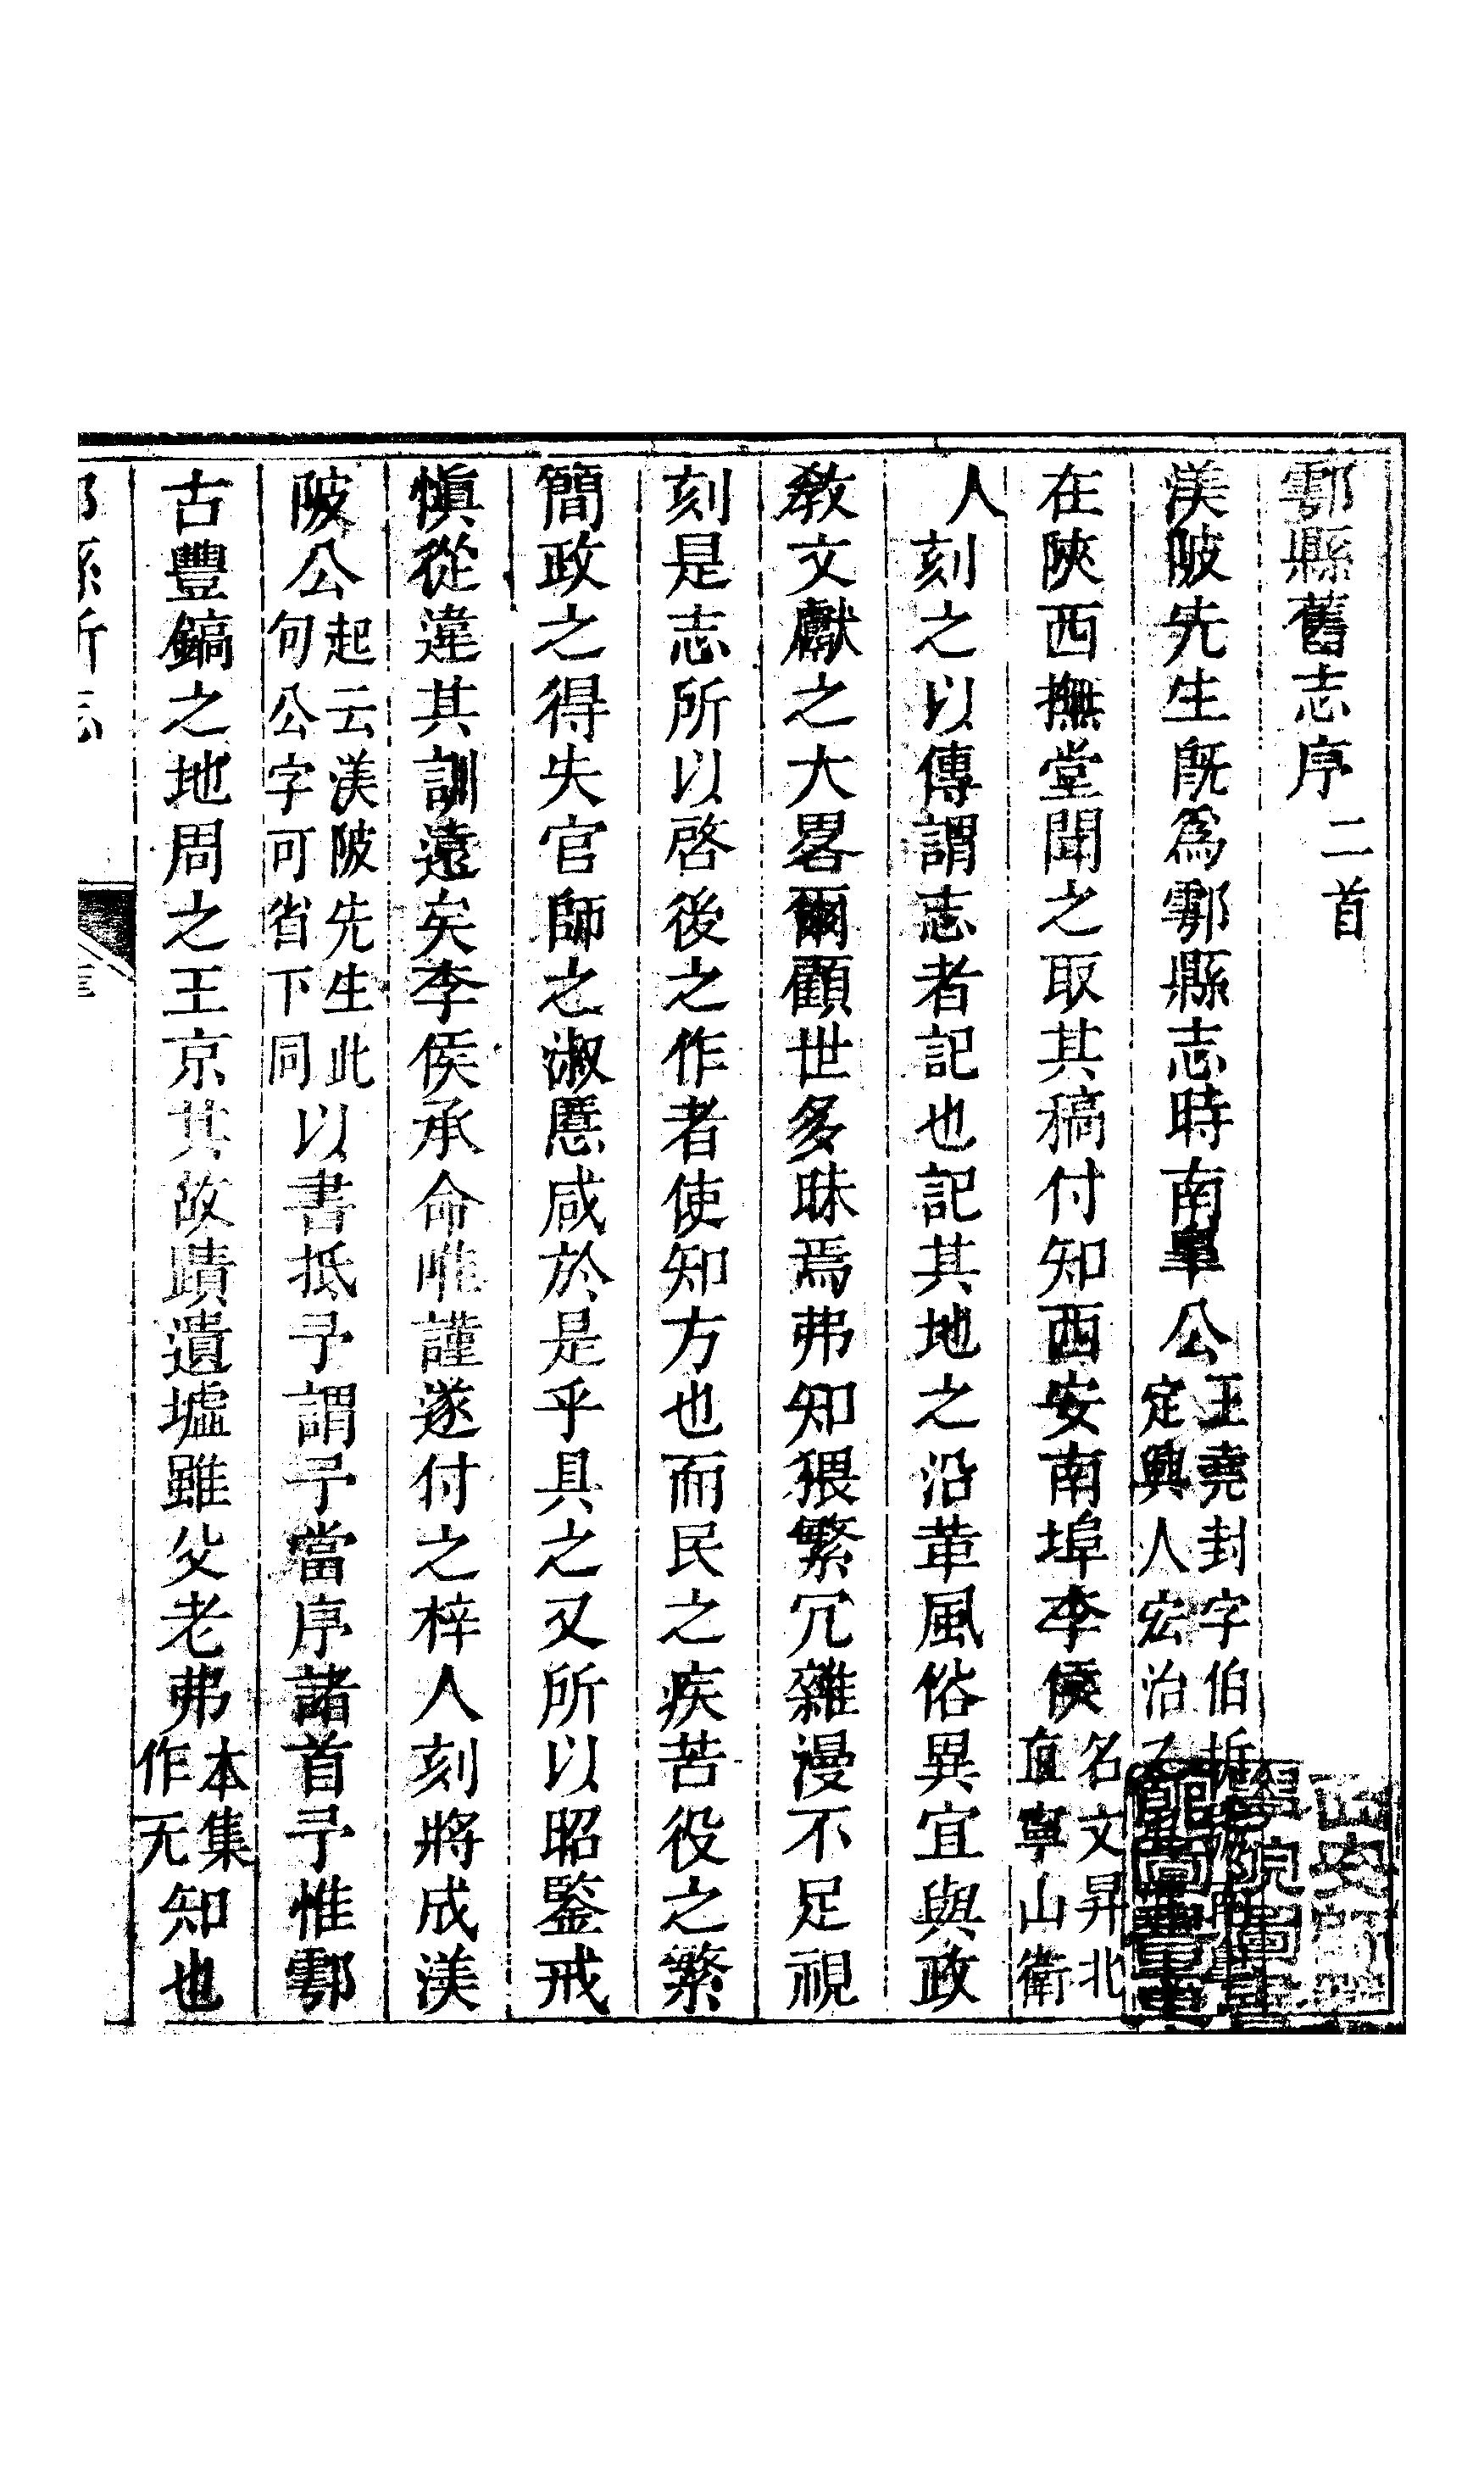 鄠縣舊志序 二首
渼陂先生既爲鄠縣志時南皐公 王堯封字伯圻 定興人宏治
在陝西撫堂聞之取其稿付知西安南埠李侯 名文昇北直寧山衛
人刻之以傳謂志者記也記其地之沿革風俗異宜與政
教文獻之大畧爾顧世多昧焉弗知猥繁冗雜漫不足視
刻是志所以啓後之作者使知方也而民之疾苦役之繁
簡政之得失官師之淑慝咸於是乎具之又所以昭鑒戒
愼從違其訓遠矣李侯承命唯謹遂付之梓人刻將成渼
陂公 起云渼陂先生此句公字可省下同 以書抵予謂予當序諸首予惟鄠
古豐鎬之地周之王京其故蹟遺墟雖父老弗 本集作无 知也